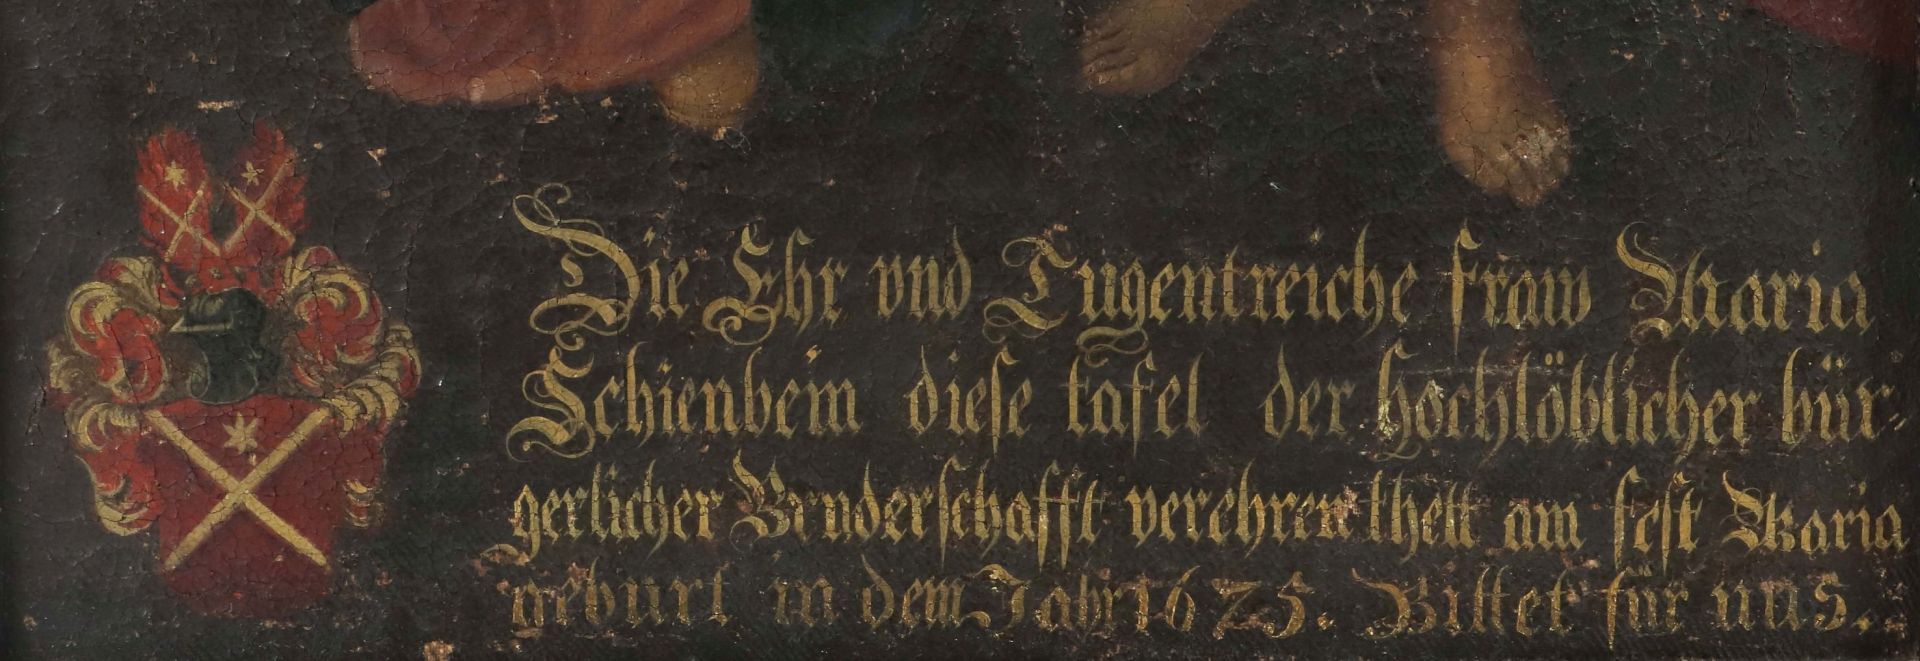 Die Ehr vnd Tugentreiche fraw Maria
Schienbein diese tafel der hochlöblicher bür-
gerlicher Bruderschafft verehren thett am fest Maria
geburt in dem Jahr 1625. Bittet für uns.